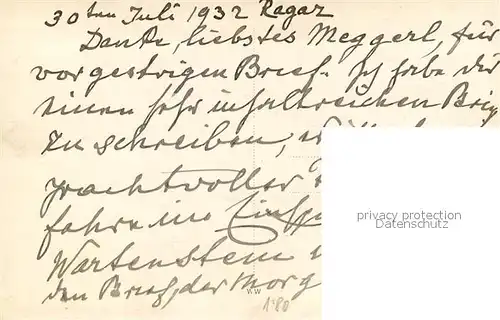 30ten Juli 1932 Ragaz
Danke, liebstes Meggerl, für
vorgestrigen Brief. Ich habe dir
einen sehr inhaltreichen Brief
zu schreiben,
prachtvoller
fahre im
Wartenstein
den Brief, der Morg
privacy protection
Datenschutz
1.80